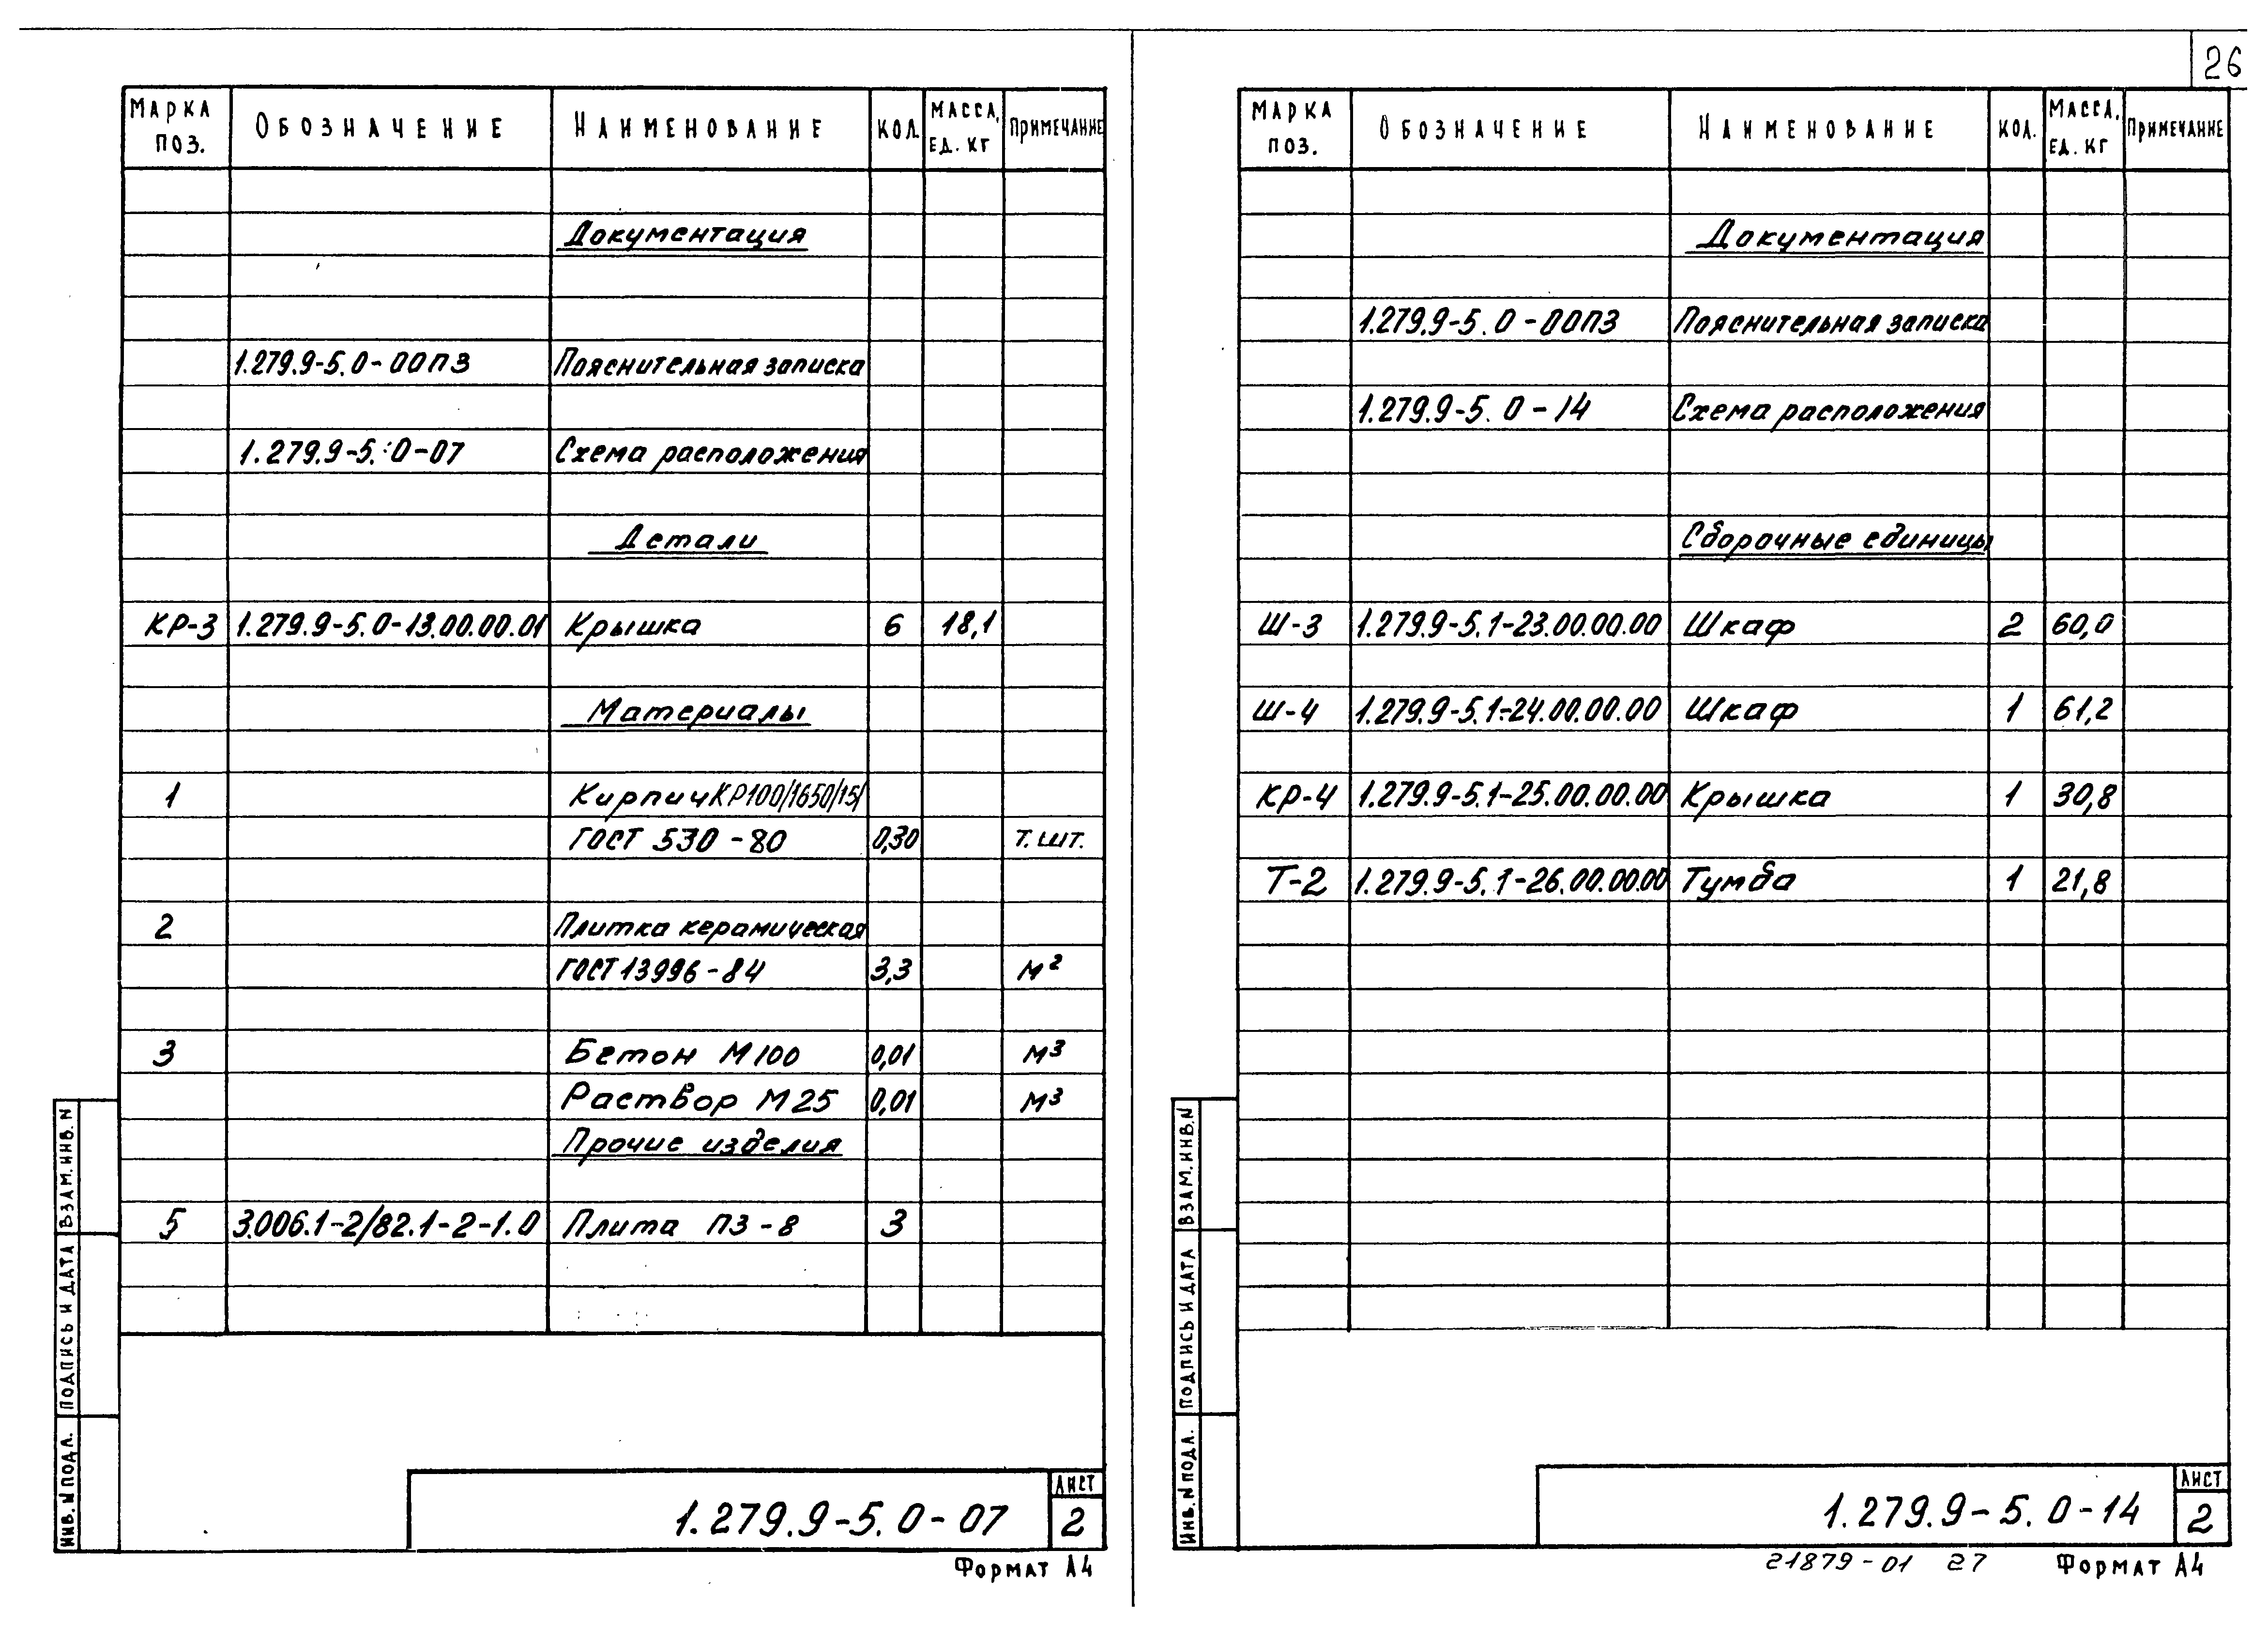 26
МАРКА ПОЗ. ОБОЗНАЧЕНИЕ НАИМЕНОВАНИЕ КОЛ. МАССА, ЕД. КГ ПРИМЕЧАНИЕ
Документация
1.279.9-5.0-00ПЗ Пояснительная записка
1.279.9-5.0-07 Схема расположения
Детали
КР-3 1.279.9-5.0-13.00.00.01 Крышка 6 18,1
Материалы
1 Кирпич КР100/1650/15/
ГОСТ 530-80 0,30 Т. ШТ.
2 Плитка керамическая
ГОСТ 13996-84 3,3 м²
3 Бетон М100 0,01 м³
Раствор М25 0,01 м³
Прочие изделия
5 3.006.1-2/82.1-2-1.0 Плита П3-8 3
ВЗАМ. ИНВ. N
ПОДПИСЬ И ДАТА
ИНВ. N ПОДЛ.
1.279.9-5.0-07
ЛИСТ
2
Формат А4
МАРКА ПОЗ. ОБОЗНАЧЕНИЕ НАИМЕНОВАНИЕ КОЛ. МАССА, ЕД. КГ ПРИМЕЧАНИЕ
Документация
1.279.9-5.0-00ПЗ Пояснительная записка
1.279.9-5.0-14 Схема расположения
Сборочные единицы
Ш-3 1.279.9-5.1-23.00.00.00 Шкаф 2 60,0
Ш-4 1.279.9-5.1-24.00.00.00 Шкаф 1 61,2
КР-4 1.279.9-5.1-25.00.00.00 Крышка 1 30,8
Т-2 1.279.9-5.1-26.00.00.00 Тумба 1 21,8
ВЗАМ. ИНВ. N
ПОДПИСЬ И ДАТА
ИНВ. N ПОДЛ.
1.279.9-5.0-14
ЛИСТ
2
21879-01 27
Формат А4